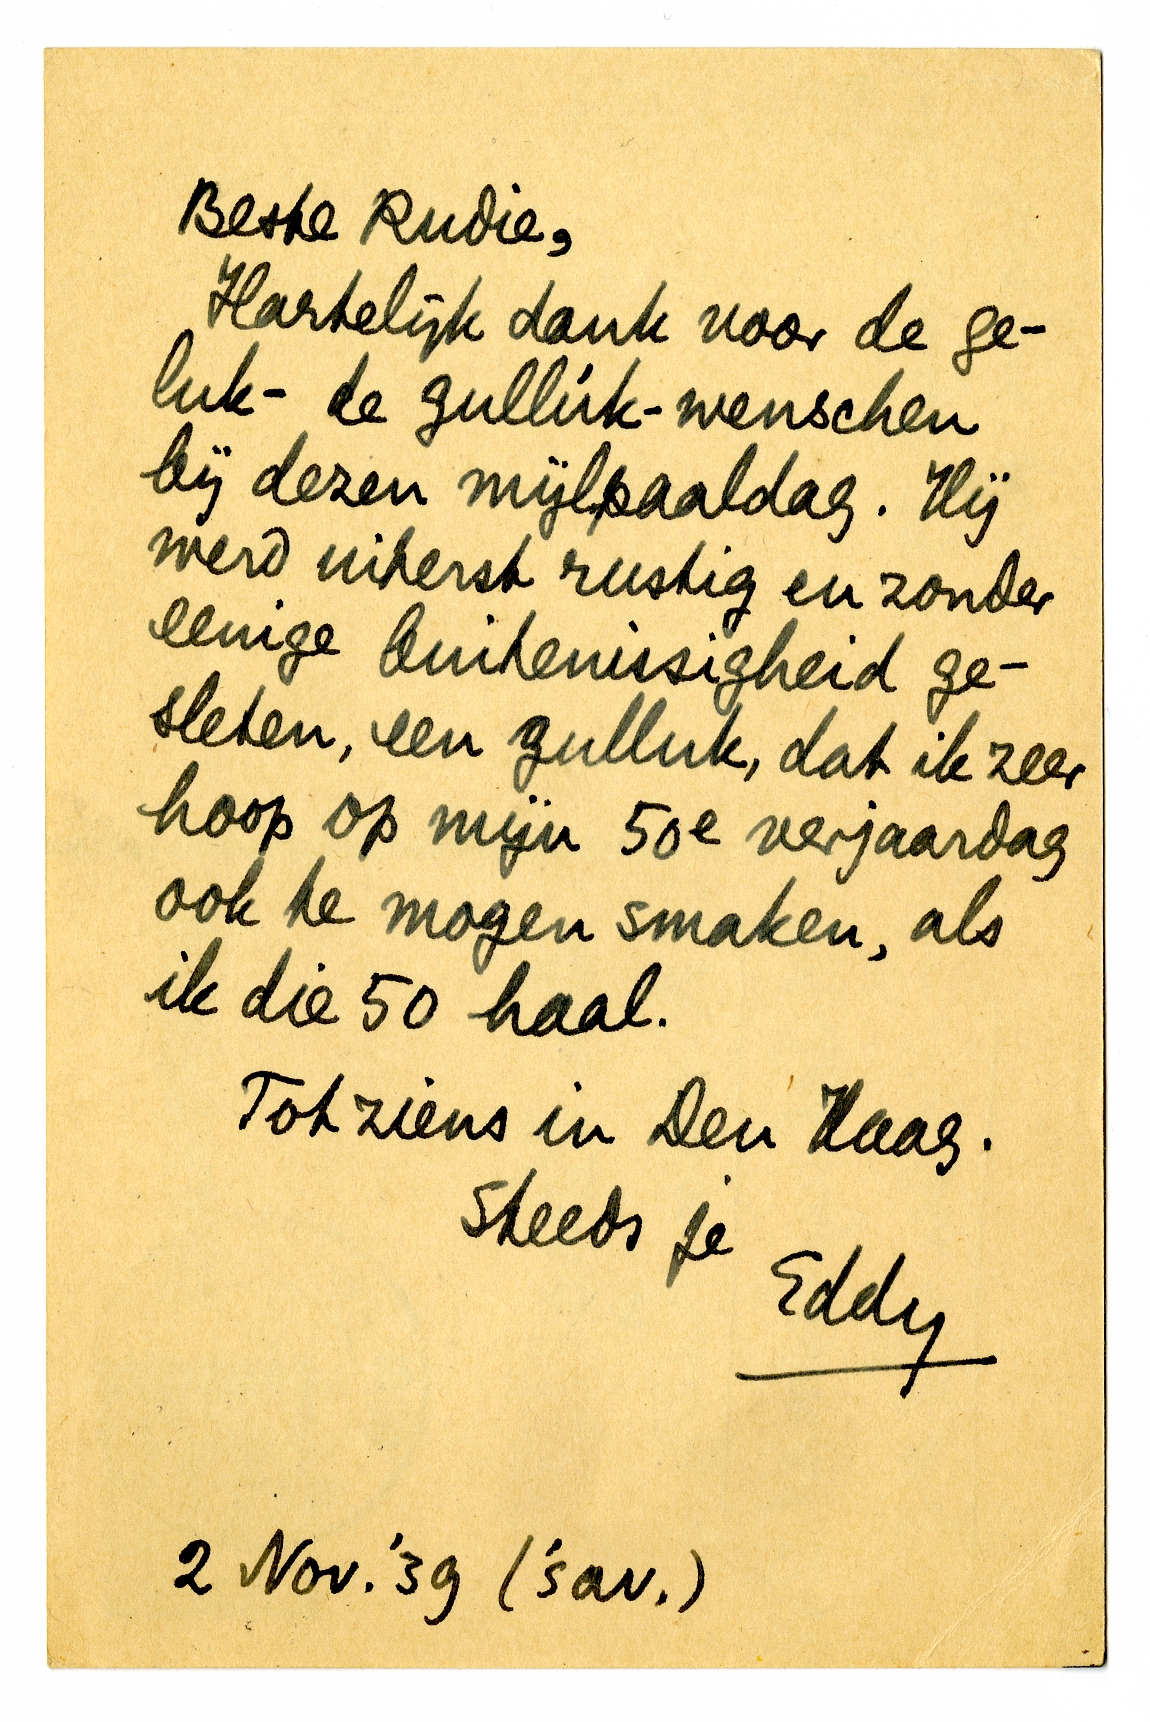 Beste Rudie,
Hartelijk dank voor de ge-
luk- de gullúk-wenschen
bij dezen mijlpaaldag. Hij
werd uiterst rustig en zonder
eenige buitenissigheid ge-
sleten, een gulluk, dat ik zeer
hoop op mijn 50e verjaardag
ook te mogen smaken, als
ik die 50 haal.
Tot ziens in Den Haag.
Steeds je
Eddy
2 Nov. '39 ('s av.)